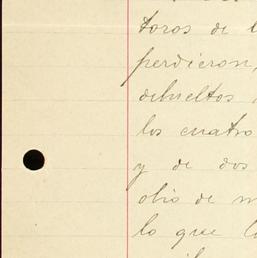 toros de l
perdieron,
debueltos
los cuatro
y de dos
olio de m
lo que l